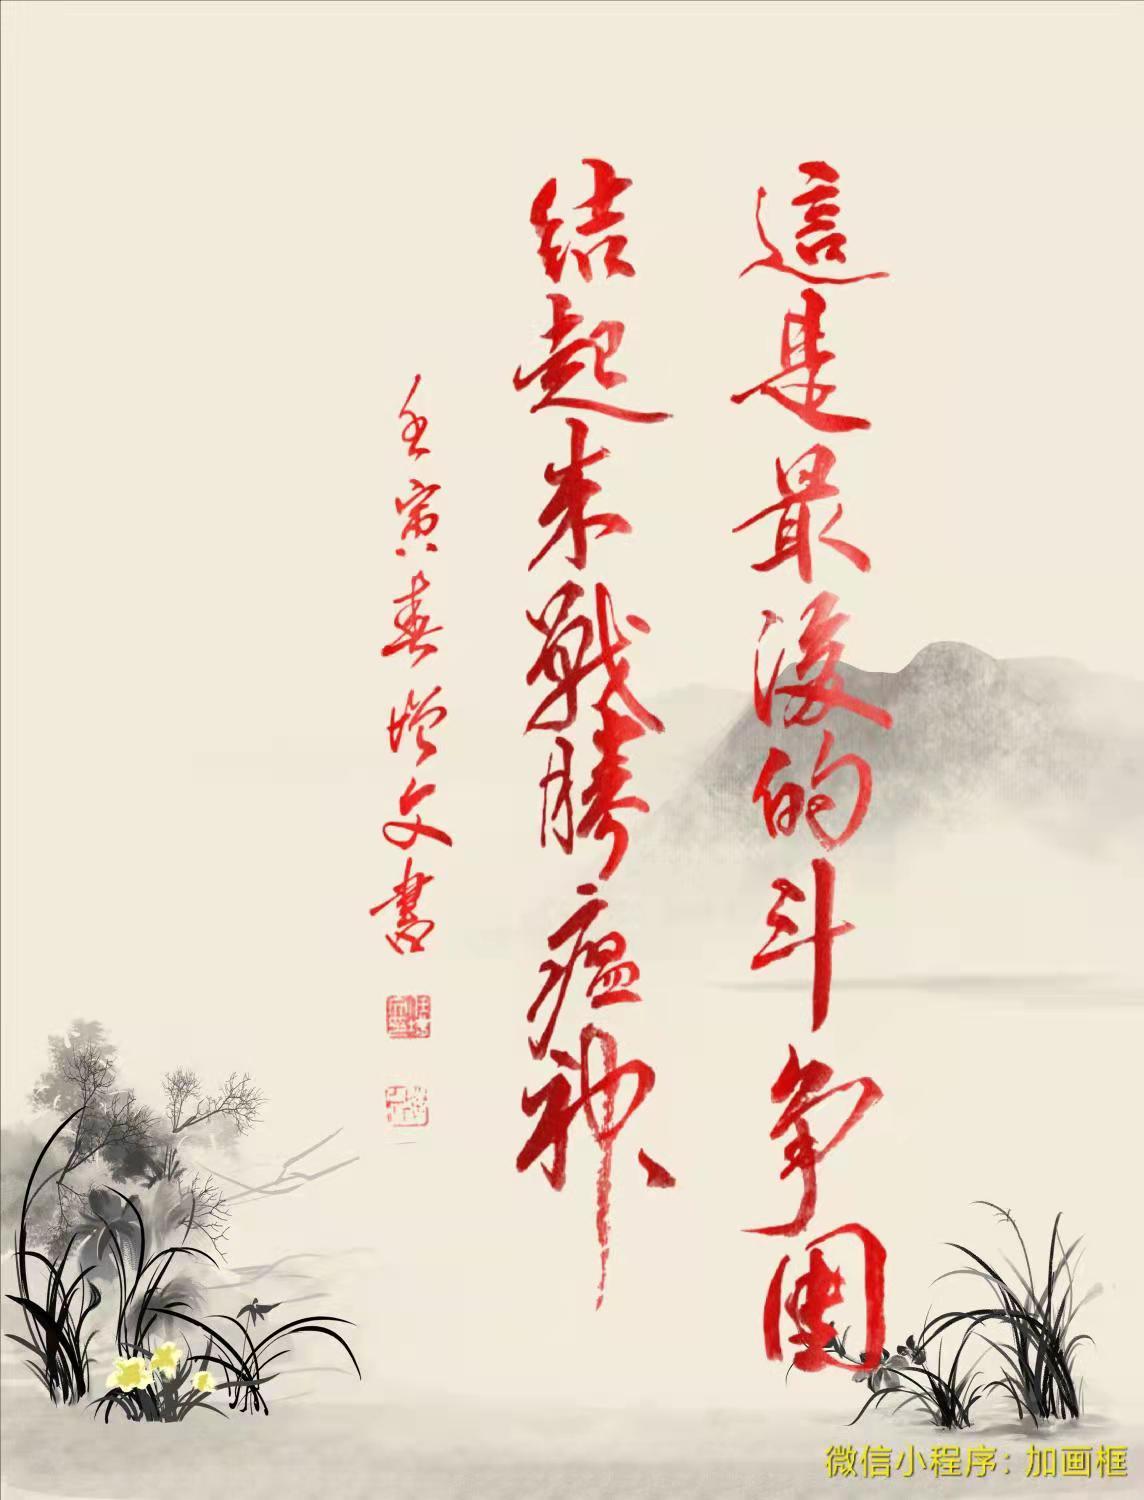 這是最後的斗争團
结起来戰勝瘟神
壬寅春增文書
微信小程序：加画框